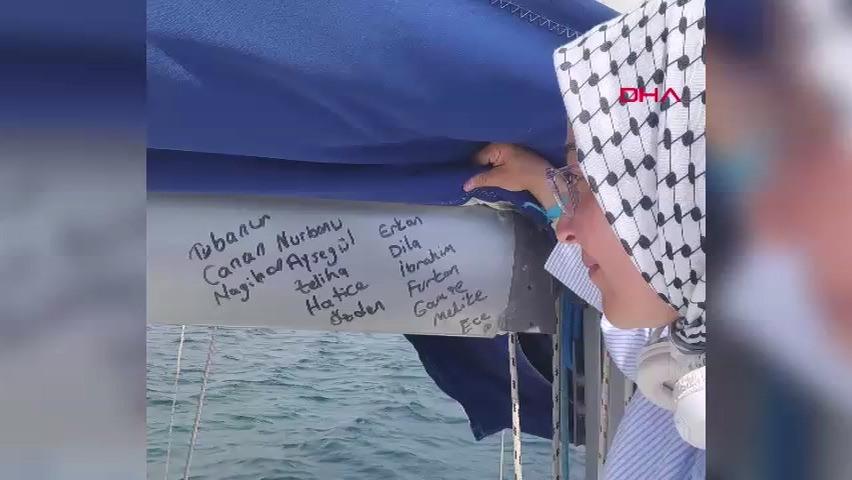 DHA
Tubanur
Canan Nurbanu
Nagihan Ayşegül
Zeliha
Hatice
Özden
Erkan
Dila
İbrahim
Furkan
Gamze
Melike
Ece